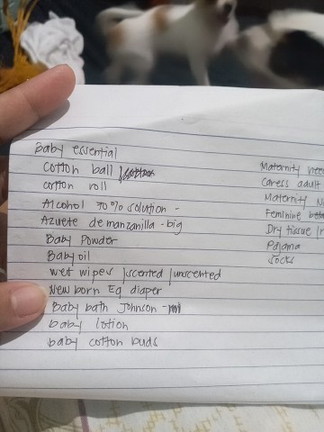 Baby essential
Cotton ball
cotton roll
Alcohol 70% solution -
Azuete de manzanilla - big
Baby Powder
Baby oil
wet wipes /scented /unscented
New born EQ diaper
Baby bath Johnson -
baby lotion
baby cotton buds
Maternity need
Caress adult
Maternity N
Feminine
Dry tissue /
Pajama
Socks